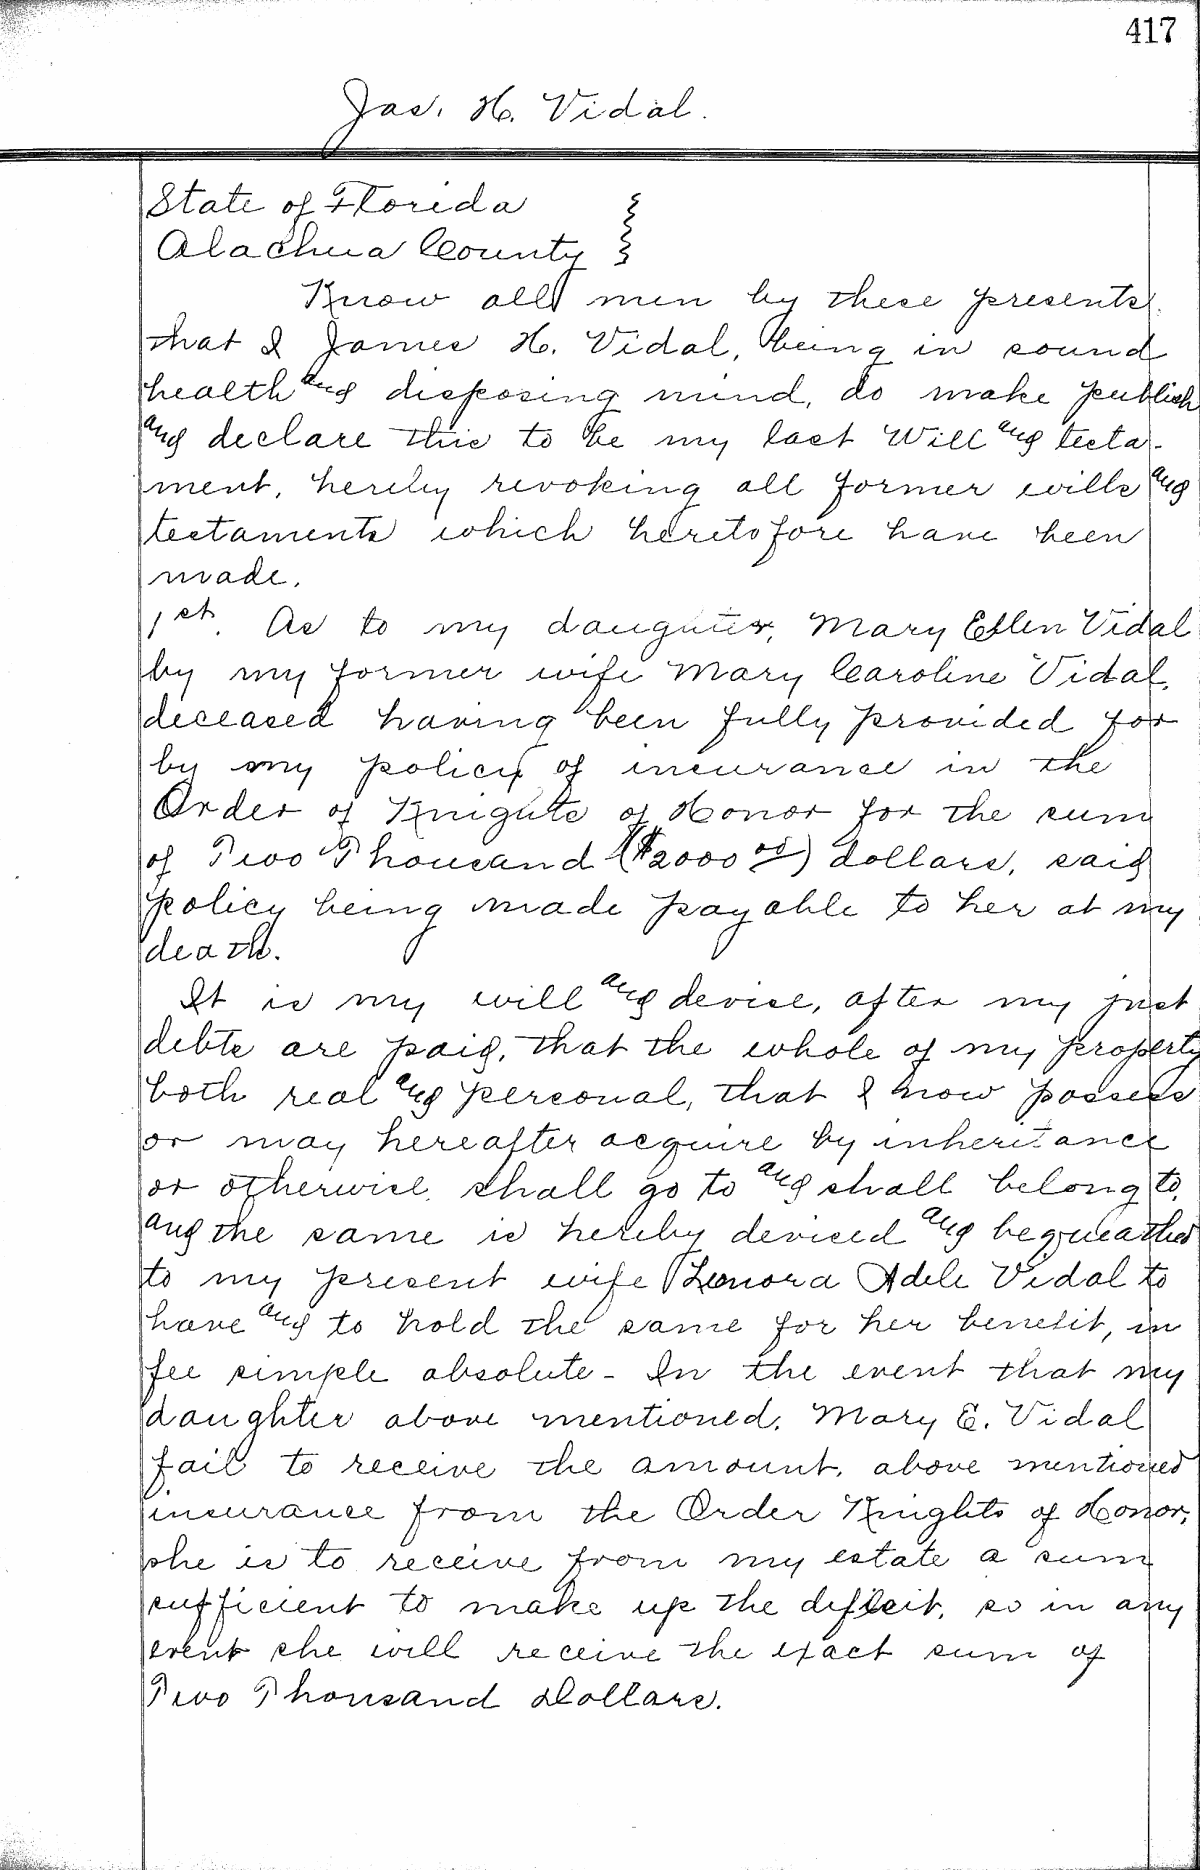 417
Jas. H. Vidal.
State of Florida
Alachua County
Know all men by these presents
that I James H. Vidal, being in sound
health and disposing mind, do make publish
and declare this to be my last Will and testa-
ment, hereby revoking all former wills and
testaments which heretofore have been
made.
1st. As to my daughter, Mary Ellen Vidal
by my former wife Mary Caroline Vidal,
deceased having been fully provided for
by my policy of insurance in the
Order of Knights of Honor for the sum
of Two Thousand ($2000 00) dollars, said
policy being made payable to her at my
death.
It is my will and devise, after my just
debts are paid, that the whole of my property
both real and personal, that I now possess
or may hereafter acquire by inheritance
or otherwise, shall go to and shall belong to,
and the same is hereby devised and bequeathed
to my present wife Lenora Adele Vidal to
have and to hold the same for her benefit, in
fee simple absolute - In the event that my
daughter above mentioned, Mary E. Vidal
fail to receive the amount, above mentioned
insurance from the Order Knights of Honor,
she is to receive from my estate a sum
sufficient to make up the deficit, so in any
event she will receive the exact sum of
Two Thousand Dollars.